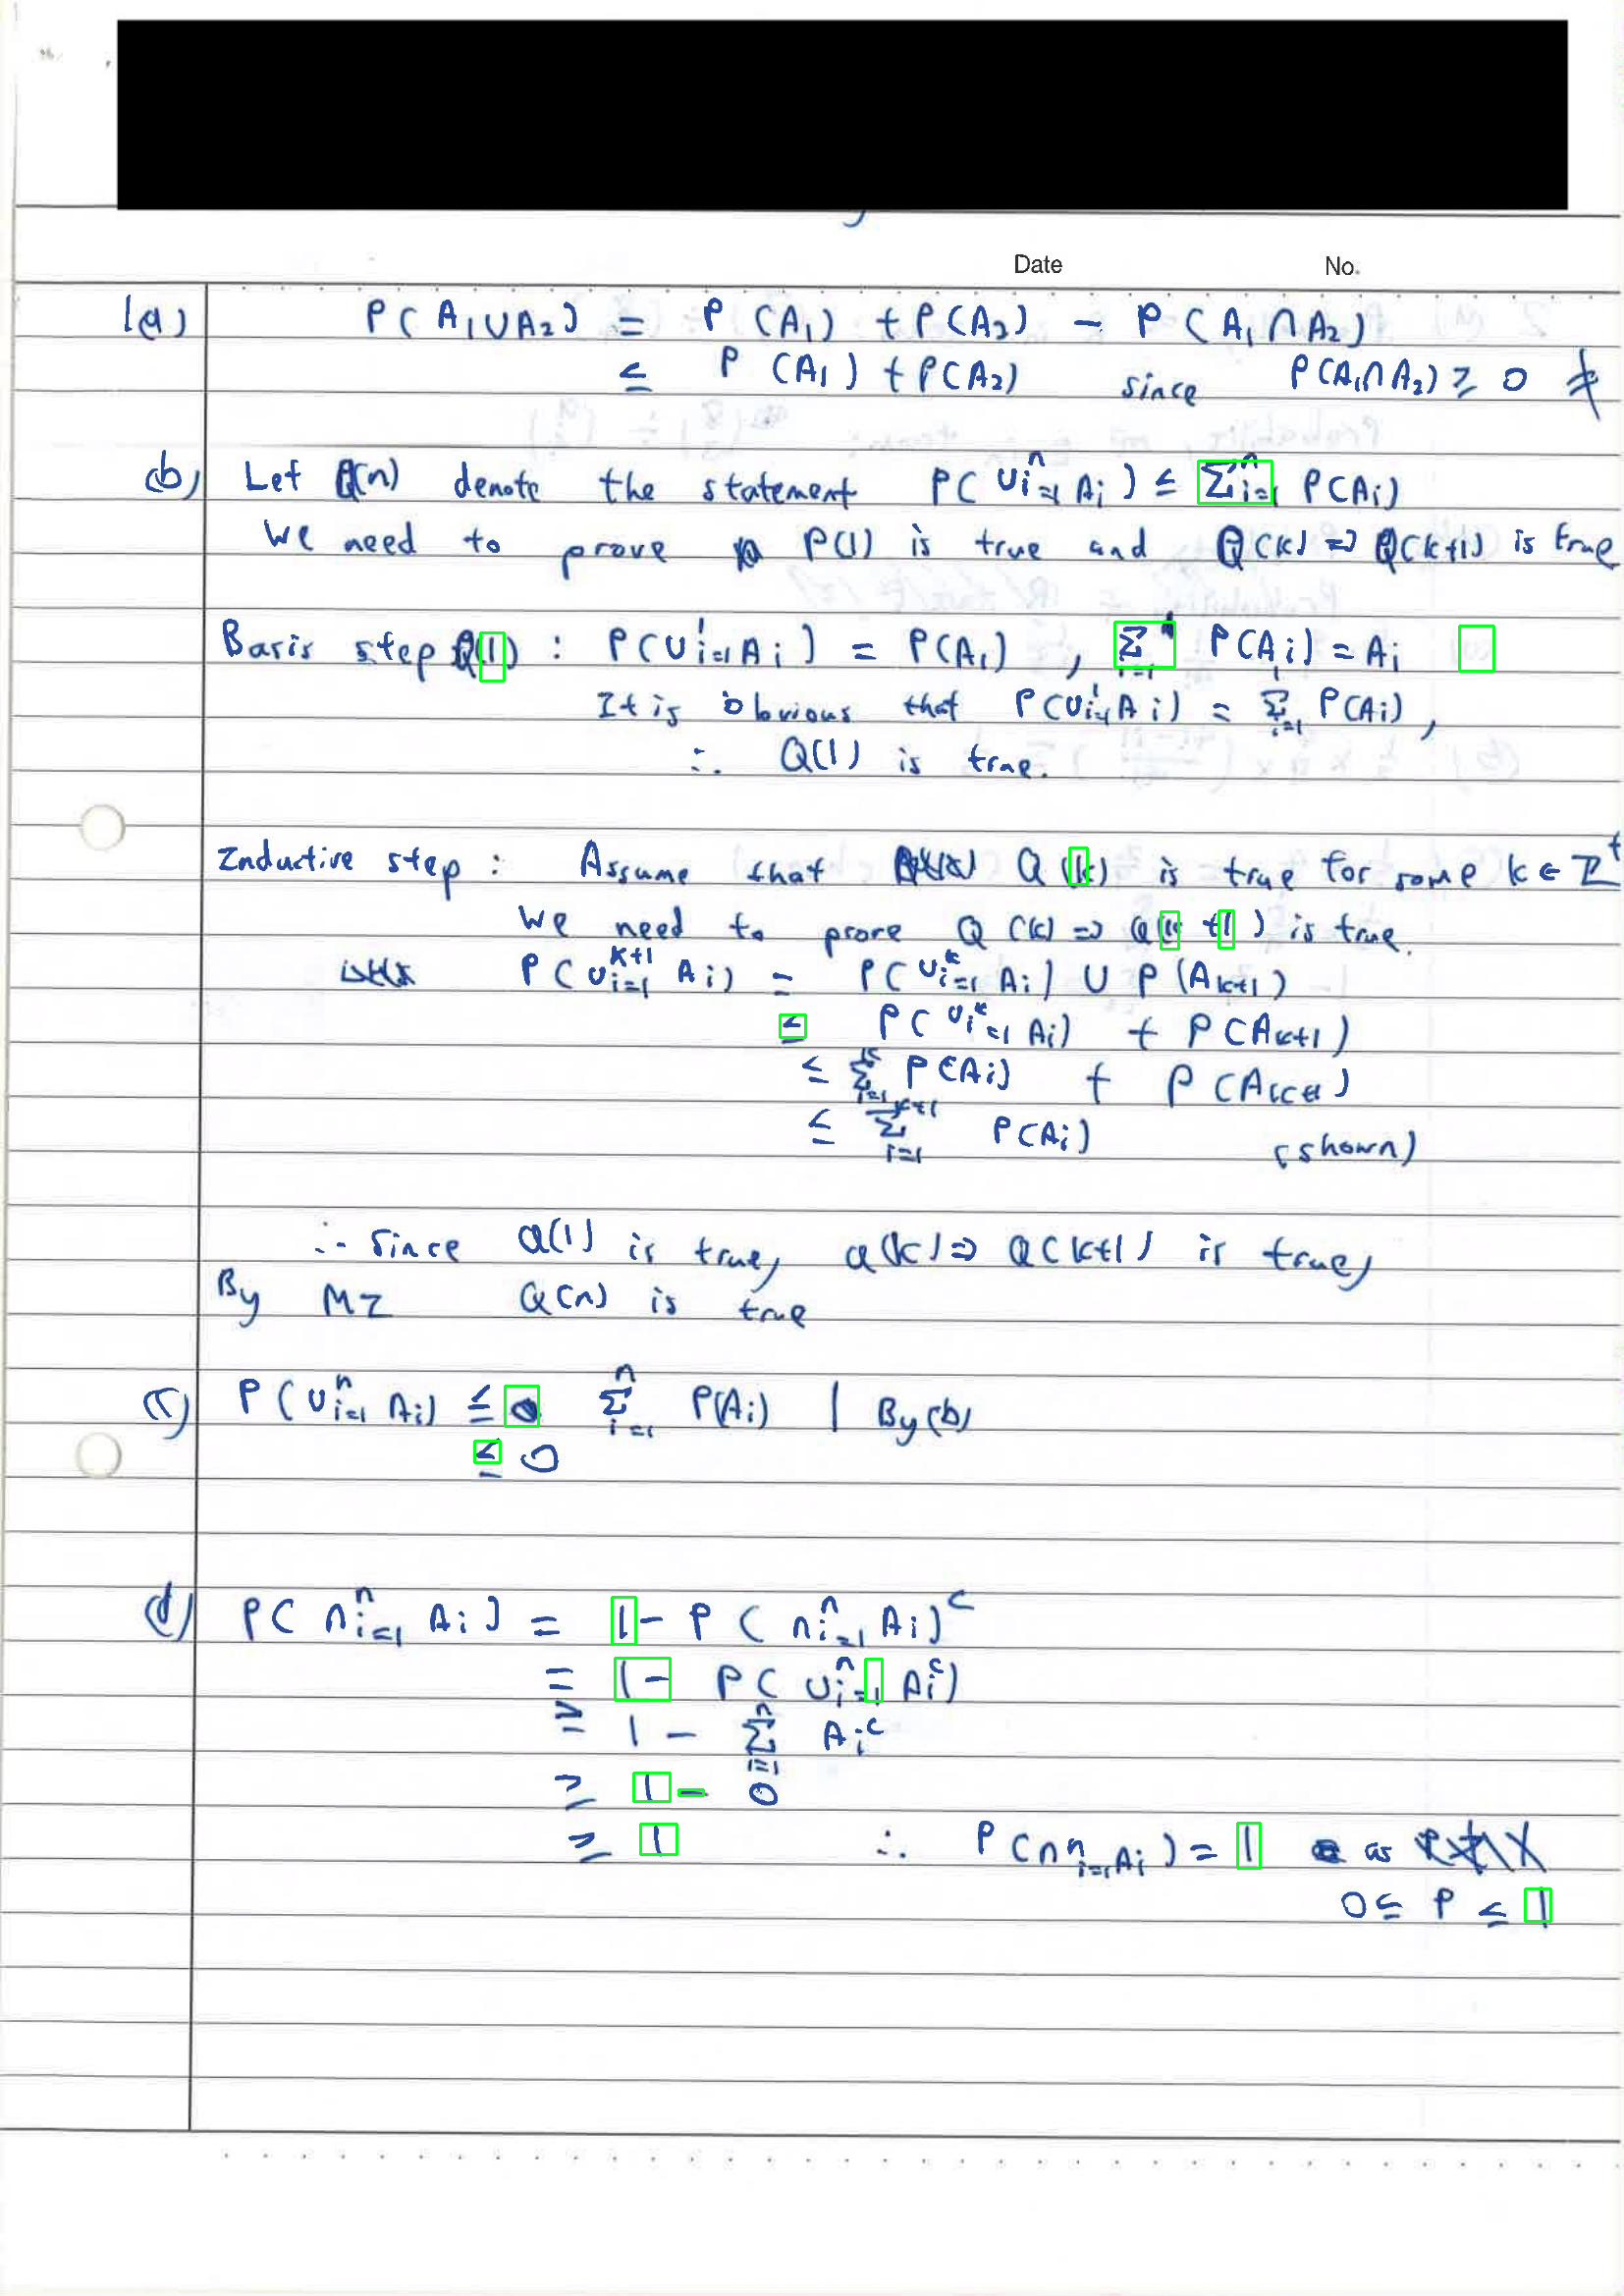 Date No.
1(a) P(A₁∪A₂) = P(A₁) + P(A₂) - P(A₁∩A₂)
≤ P(A₁) + P(A₂) since P(A₁∩A₂) ≥ 0
(b) Let Q(n) denote the statement P(∪ⁿᵢ₌₁ Aᵢ) ≤ Σⁿᵢ₌₁ P(Aᵢ)
We need to prove P(1) is true and Q(k) => Q(k+1) is true
Basis step Q(1) : P(∪¹ᵢ₌₁ Aᵢ) = P(A₁) , Σ¹ᵢ₌₁ P(Aᵢ) = Aᵢ
It is obvious that P(∪¹ᵢ₌₁ Aᵢ) = Σ¹ᵢ₌₁ P(Aᵢ) ,
∴ Q(1) is true.
Inductive step : Assume that Q(k) is true for some k ∈ ℤ⁺
We need to prove Q(k) => Q(k+1) is true.
P(∪ᵏ⁺¹ᵢ₌₁ Aᵢ) = P(∪ᵏᵢ₌₁ Aᵢ) ∪ P(Aₖ₊₁)
≤ P(∪ᵏᵢ₌₁ Aᵢ) + P(Aₖ₊₁)
≤ Σᵏᵢ₌₁ P(Aᵢ) + P(Aₖ₊₁)
≤ Σᵏ⁺¹ᵢ₌₁ P(Aᵢ) (shown)
∴ Since Q(1) is true, Q(k) => Q(k+1) is true,
By MI Q(n) is true
(c) P(∪ⁿᵢ₌₁ Aᵢ) ≤ Σⁿᵢ₌₁ P(Aᵢ) | By (b)
≤ 0
(d) P(∩ⁿᵢ₌₁ Aᵢ) = 1 - P(∩ⁿᵢ₌₁ Aᵢ)ᶜ
= 1 - P(∪ⁿᵢ₌₁ Aᵢᶜ)
≥ 1 - Σⁿᵢ₌₁ Aᵢᶜ
≥ 1 - 0
≥ 1 ∴ P(∩ⁿᵢ₌₁ Aᵢ) = 1 as
0 ≤ P ≤ 1